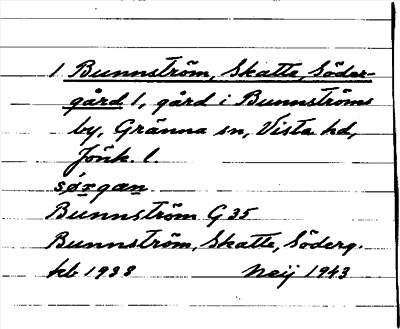 1 Bunnström, Skatte, Söder-
gård 1, gård i Bunnströms
by, Gränna sn, Vista hd,
Jönk. l.
sø̱rgæn
Bunnström G 35
Bunnström, Skatte, Söderg.
kb 1938 Neij 1943